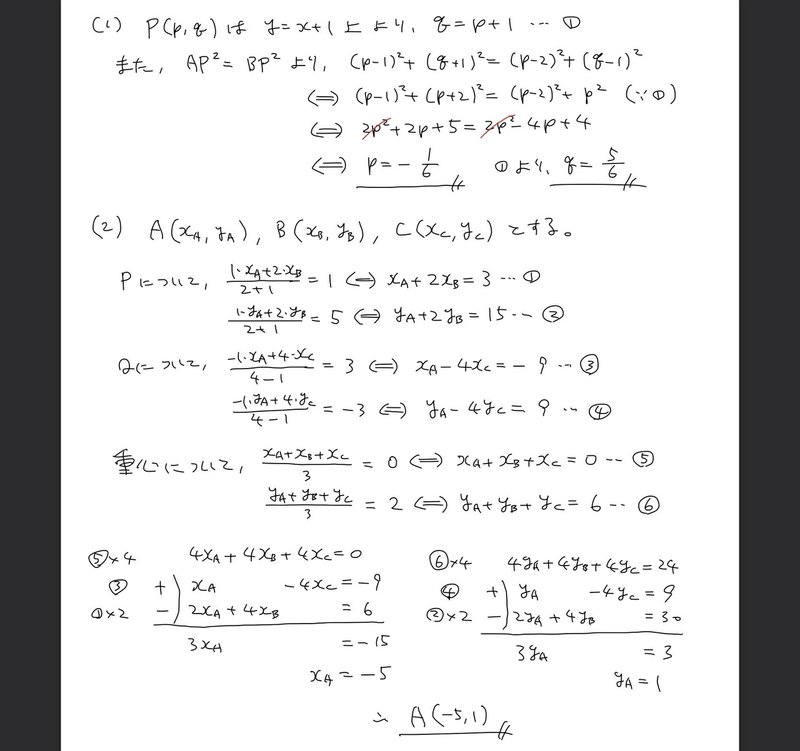 (1) P(p, q) は y=x+1 上より, q=p+1 … ①
また, AP²=BP² より, (p-1)²+(q+1)²=(p-2)²+(q-1)²
⟺ (p-1)²+(p+2)²=(p-2)²+p² (∵①)
⟺ 2p²+2p+5=2p²-4p+4
⟺ p=-1/6 ①より, q=5/6
(2) A(x_A, y_A), B(x_B, y_B), C(x_C, y_C) とする。
Pについて, (1·x_A+2·x_B)/(2+1)=1 ⟺ x_A+2x_B=3 … ①
(1·y_A+2·y_B)/(2+1)=5 ⟺ y_A+2y_B=15 … ②
Qについて, (-1·x_A+4·x_C)/(4-1)=3 ⟺ x_A-4x_C=-9 … ③
(-1·y_A+4·y_C)/(4-1)=-3 ⟺ y_A-4y_C=9 … ④
重心について, (x_A+x_B+x_C)/3=0 ⟺ x_A+x_B+x_C=0 … ⑤
(y_A+y_B+y_C)/3=2 ⟺ y_A+y_B+y_C=6 … ⑥
⑤×4 4x_A+4x_B+4x_C=0
③ +) x_A -4x_C=-9
①×2 -) 2x_A+4x_B =6
3x_A =-15
x_A=-5
⑥×4 4y_A+4y_B+4y_C=24
④ +) y_A -4y_C=9
②×2 -) 2y_A+4y_B =30
3y_A =3
y_A=1
∴ A(-5,1)